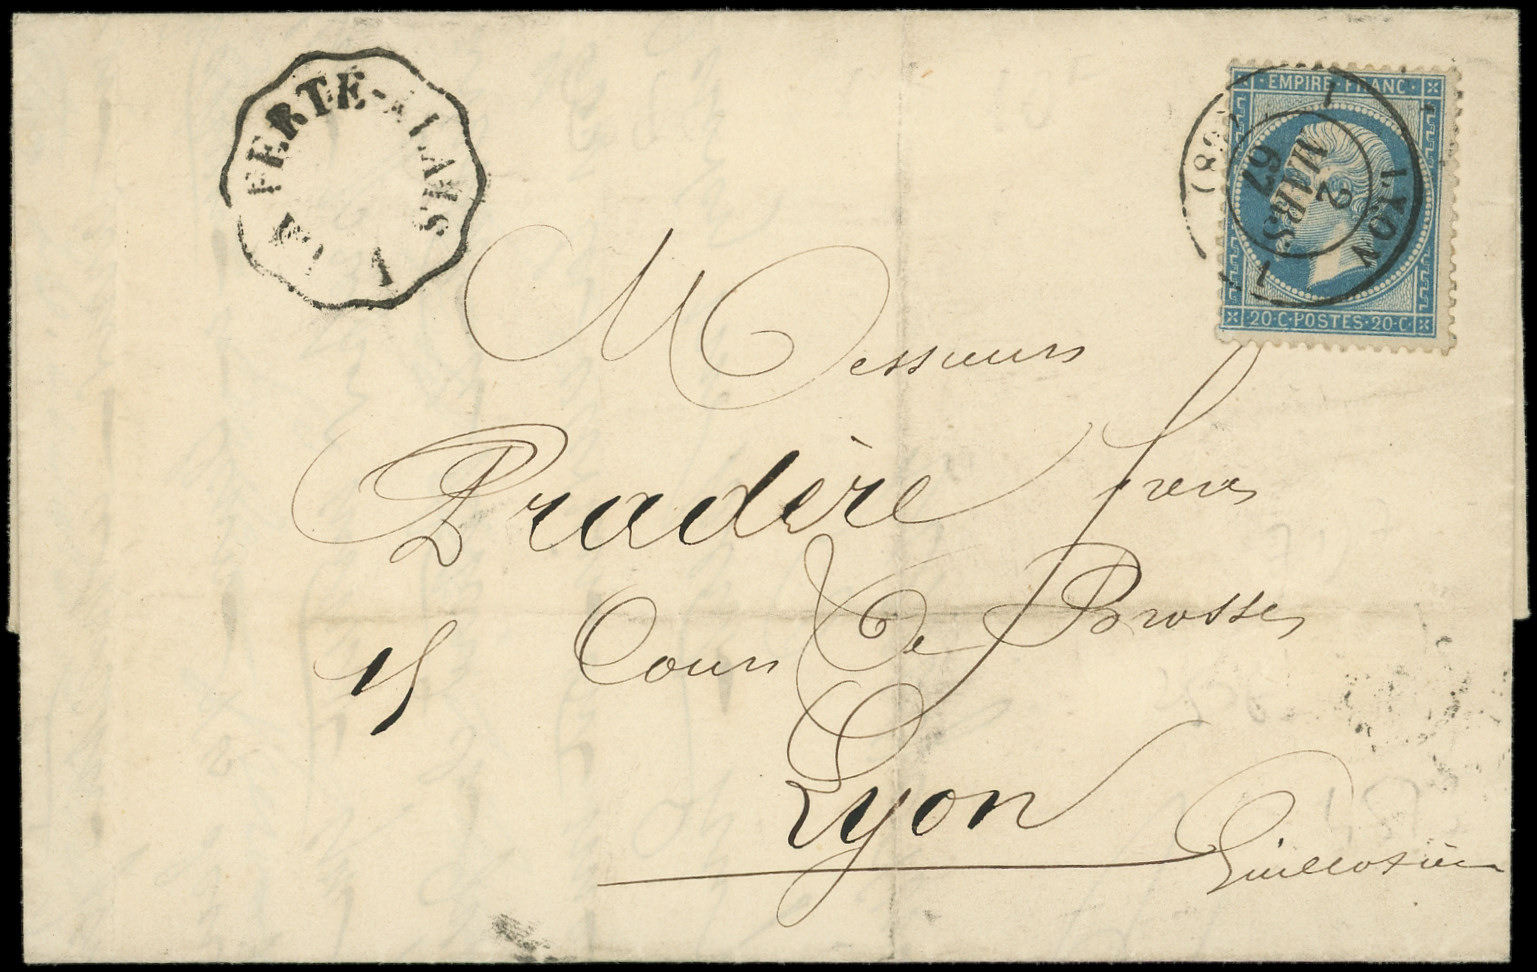 LA FERTE-ALAIS 1
EMPIRE FRANC
1 LYON 1
2
MARS
67
(68)
20·C·POSTES·20·C
Messieurs
Pradère frères
15 Cours De Brosses
Lyon
Guillotière